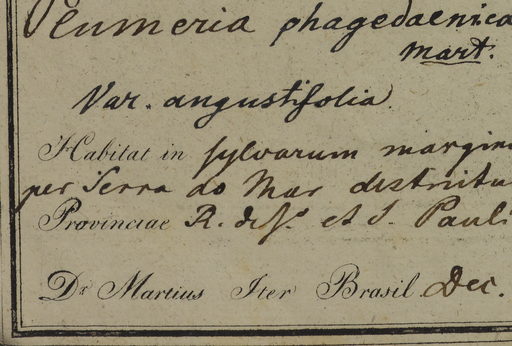 Plumeria phagedaenica
Mart.
Var. angustifolia
Habitat in sylvarum margin
per Serra do Mar distritu
Provinciae R. de J.º et S. Pauli
Dr Martius Iter Brasil. Dec.